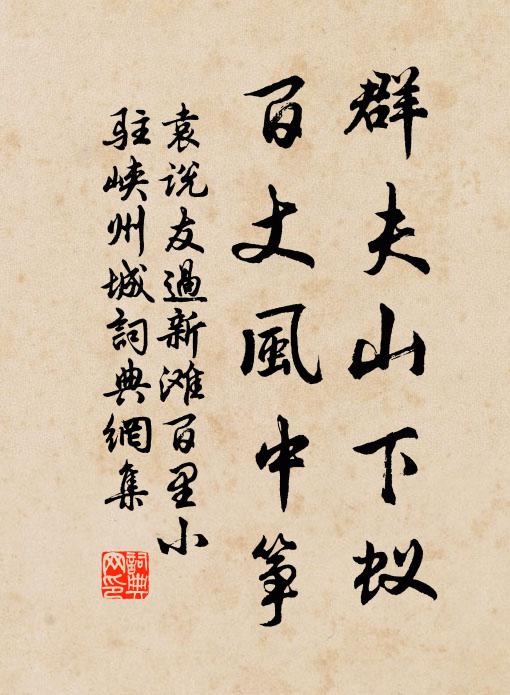 群夫山下蚁
百丈風中筝
袁说友過新滩百里小
駐峡州城詞典網集
詞典
网印